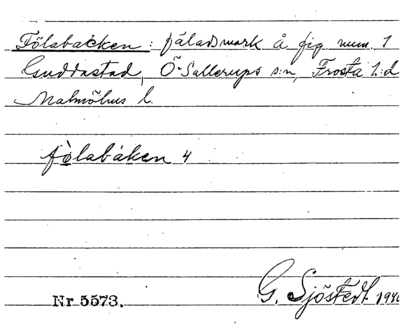 Fölabacken: fäladsmark å fig num. 1
Guddastad, Ö-Sallerups s:n, Frosta h:d
Malmöhus l.
fölabàken 4
G. Sjöstedt 1940
Nr 5573.